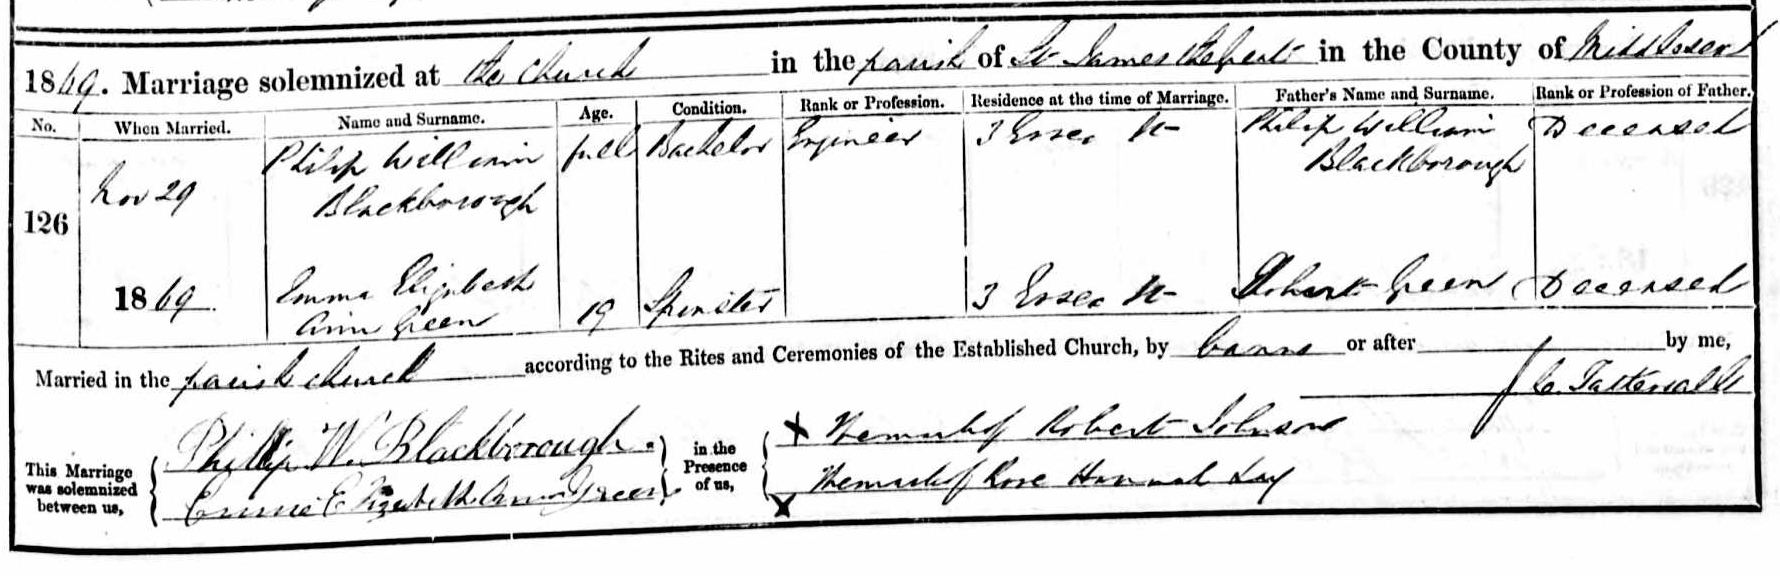 1869. Marriage solemnized at the church in the parish of St James the Great in the County of Middlesex
No. When Married. Name and Surname. Age. Condition. Rank or Profession. Residence at the time of Marriage. Father's Name and Surname. Rank or Profession of Father.
126
Nov 29
1869.
Philip William
Blackborough
full
Bachelor
Engineer
3 Essex St
Philip William
Blackborough
Deceased
Emma Elizabeth
Ann Green
19
Spinster
3 Essex St
Robert Green
Deceased
Married in the parish church according to the Rites and Ceremonies of the Established Church, by banns or after by me,
This Marriage
was solemnized
between us,
Phillip W. Blackborough.
Emma Elizabeth Ann Green
in the
Presence
of us,
X The mark of Robert Johnson
X The mark of Rose Hannah Day